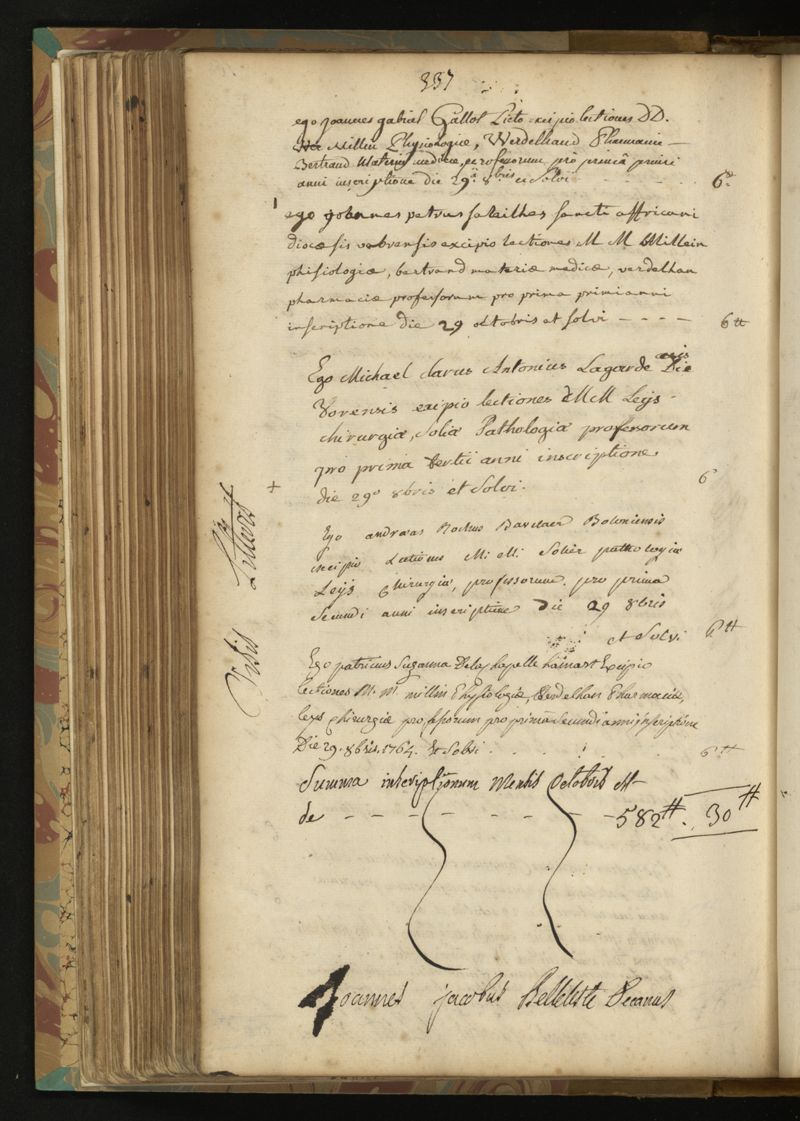 337
ego joannes gabriel Gallot Picto excipio lectiones DD.
Millin Physiologiæ, Werdelhand Pharmaciæ
Bertrand Materiæ medicæ, professorum pro primâ primi
anni inscriptione die 29ª 8bris et Solvi - - - - - 6
ego johannes petrus saleilhes sancti affricani
diocæsis vabrensis excipio lectiones M M Millein
phisiologiæ, bertrand materiæ medicæ, verdelhan
pharmaciæ professorum pro prima primi anni
inscriptione die 29 octobris et solvi - - - - 6 tt
Ego Michael clarus Antonius Lagarde
excipio lectiones MM Leÿs
chirurgiæ, Solier Pathologiæ professorum
pro prima tertii anni inscriptione
die 29º 8bris et Solvi. 6
+
Ego andræas Rochus Bononiensis
excipio Lectiones M. M. Solier pathologiæ
Leÿs chirurgiæ, professorum, pro prima
Secundi anni inscriptione Die 29 8bris
et Solvi 6 tt
Ego patricius Suzanna Delachapelle hainart Excipio
lectiones M. M. millin Physiologiæ, Verdelhan Pharmaciæ,
leys chirurgiæ professorum pro prima Secundi anni inscriptione
Die 29. 8bris. 1764. & Solvi . . . . 6 tt
Summa inscriptionum Mensis Octobris est
de - - - - - - - - 582 tt. 30 tt
Joannes jacobus Belleteste Decanus